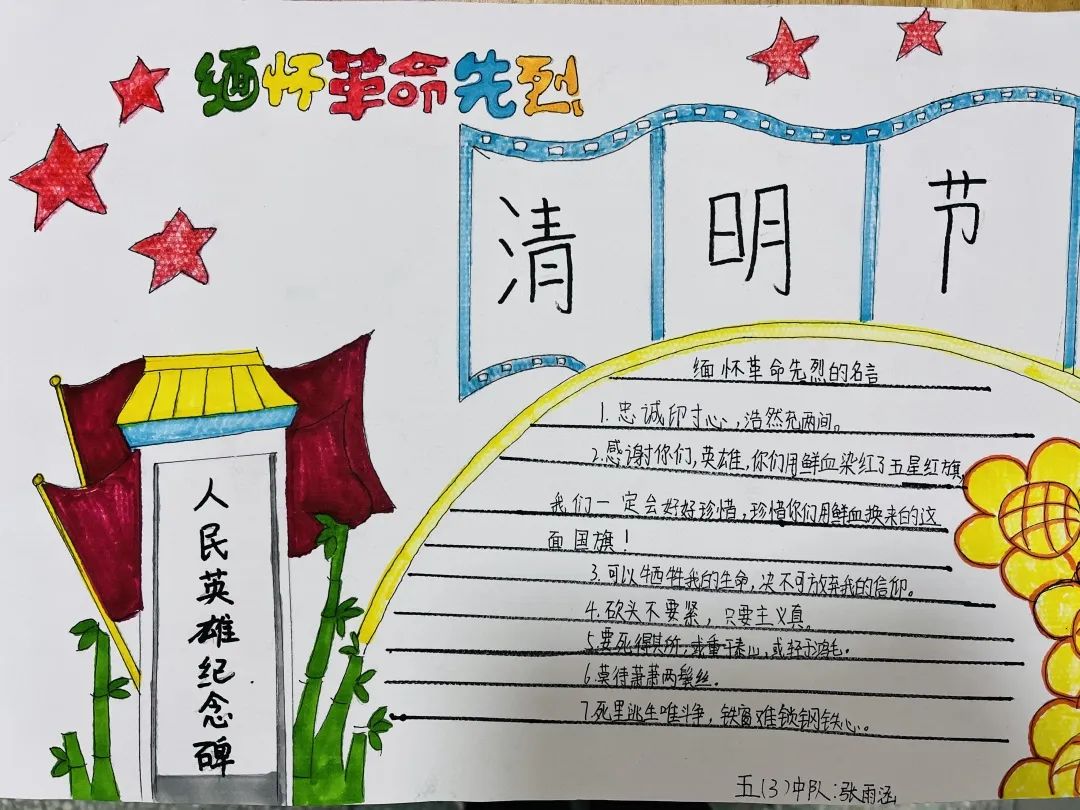 缅怀革命先烈
清明节
人民英雄纪念碑
缅怀革命先烈的名言
1.忠诚印寸心,浩然充两间。
2.感谢你们,英雄,你们用鲜血染红了五星红旗,
我们一定会好好珍惜,珍惜你们用鲜血换来的这
面国旗!
3.可以牺牲我的生命,决不可放弃我的信仰。
4.砍头不要紧,只要主义真。
5.要死得其所,或重于泰山,或轻于鸿毛。
6.莫待萧萧两鬓丝。
7.死里逃生唯斗争,铁窗难锁钢铁心。
五(3)中队:张雨涵